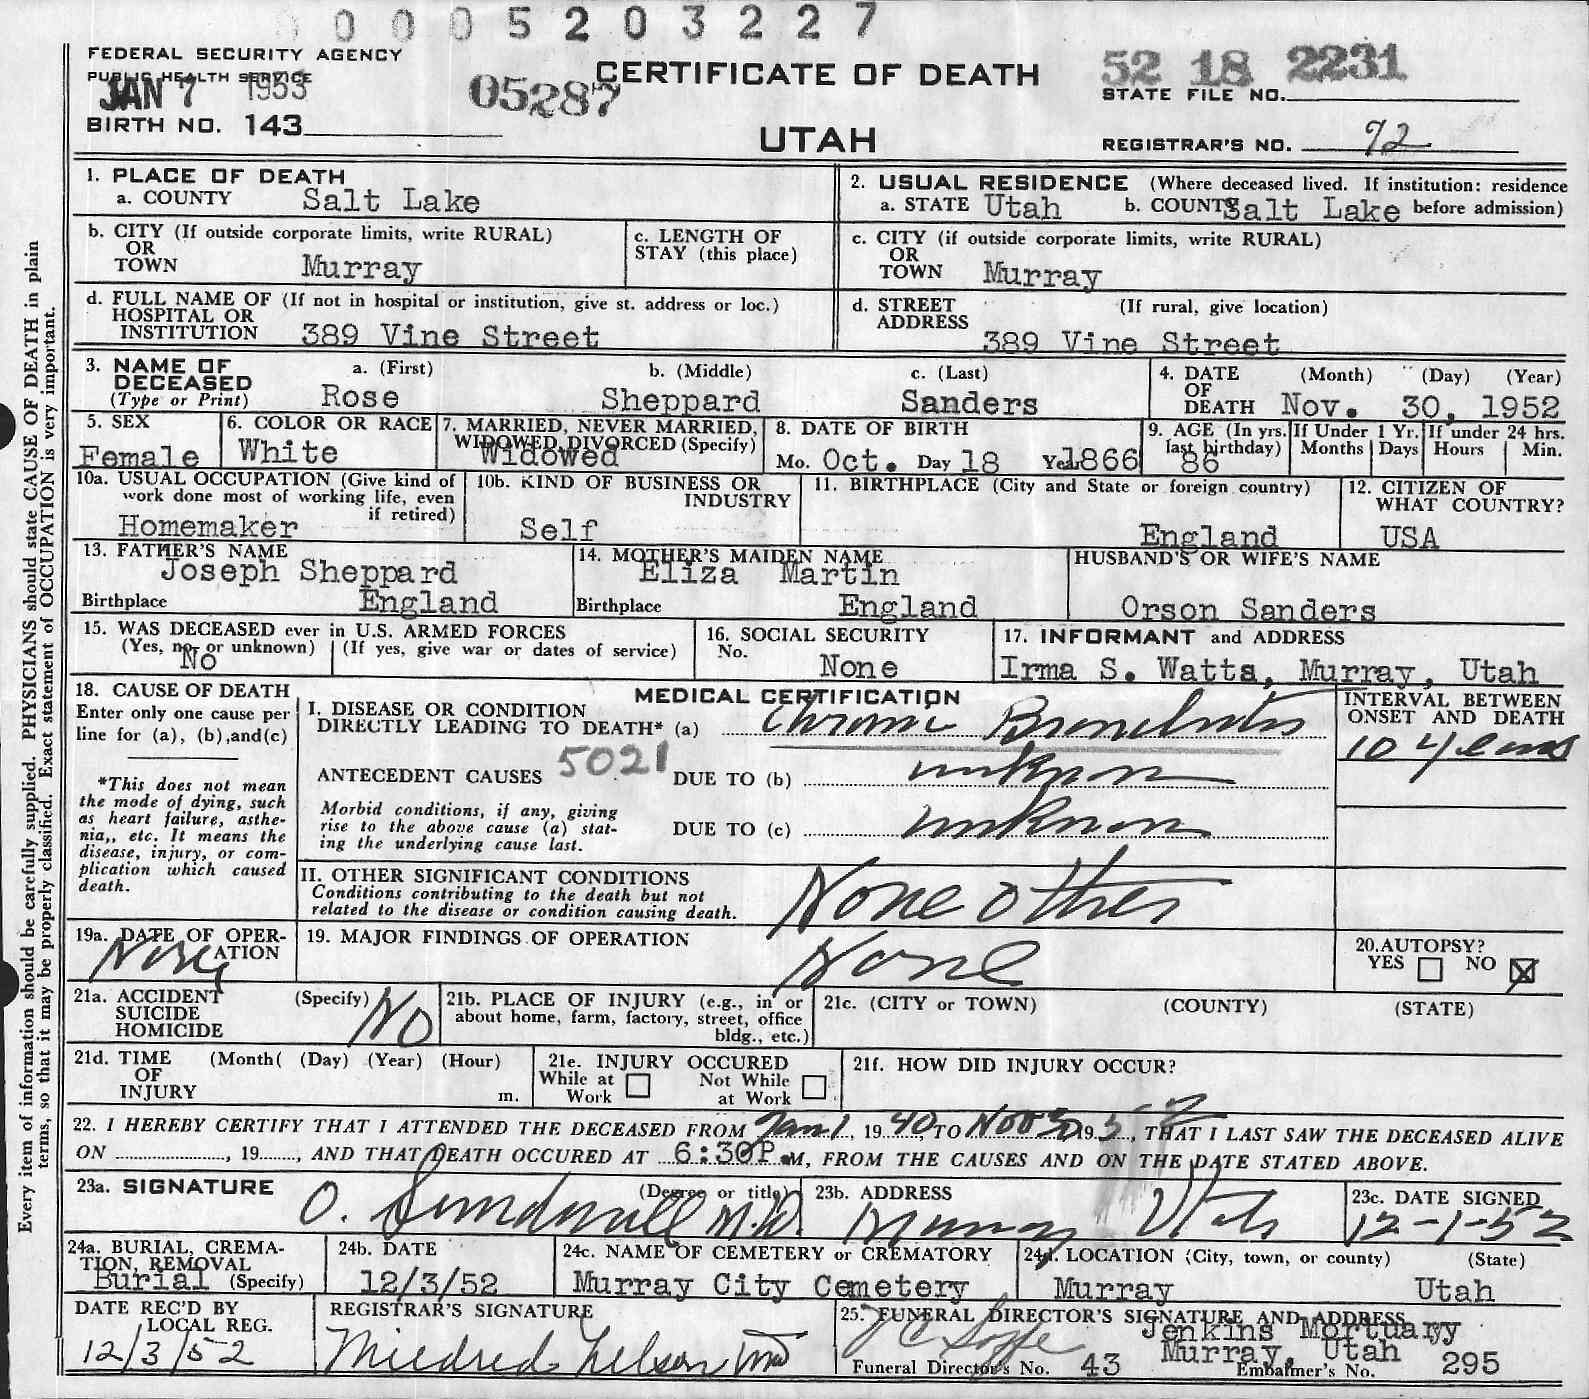 0005203227
FEDERAL SECURITY AGENCY
PUBLIC HEALTH SERVICE
JAN 7 1953
05287
CERTIFICATE OF DEATH
52 18 2231
STATE FILE NO.
BIRTH NO. 143
UTAH
REGISTRAR'S NO. 92
Every item of information should be carefully supplied. PHYSICIANS should state CAUSE OF DEATH in plain
terms, so that it may be properly classified. Exact statement of OCCUPATION is very important.
1. PLACE OF DEATH
a. COUNTY Salt Lake
2. USUAL RESIDENCE (Where deceased lived. If institution: residence
a. STATE Utah b. COUNTY Salt Lake before admission)
b. CITY (If outside corporate limits, write RURAL)
OR
TOWN Murray
c. LENGTH OF
STAY (this place)
c. CITY (if outside corporate limits, write RURAL)
OR
TOWN Murray
d. FULL NAME OF (If not in hospital or institution, give st. address or loc.)
HOSPITAL OR
INSTITUTION 389 Vine Street
d. STREET (If rural, give location)
ADDRESS 389 Vine Street
3. NAME OF DECEASED (Type or Print)
a. (First) b. (Middle) c. (Last)
Rose Sheppard Sanders
4. DATE OF DEATH (Month) (Day) (Year)
Nov. 30, 1952
5. SEX
Female
6. COLOR OR RACE
White
7. MARRIED, NEVER MARRIED,
WIDOWED, DIVORCED (Specify)
Widowed
8. DATE OF BIRTH
Mo. Oct. Day 18 Yr. 1866
9. AGE (In yrs. last birthday)
86
If Under 1 Yr.
Months Days
If under 24 hrs.
Hours Min.
10a. USUAL OCCUPATION (Give kind of
work done most of working life, even
if retired)
Homemaker
10b. KIND OF BUSINESS OR
INDUSTRY
Self
11. BIRTHPLACE (City and State or foreign country)
England
12. CITIZEN OF
WHAT COUNTRY?
USA
13. FATHER'S NAME
Joseph Sheppard
Birthplace England
14. MOTHER'S MAIDEN NAME
Eliza Martin
Birthplace England
HUSBAND'S OR WIFE'S NAME
Orson Sanders
15. WAS DECEASED ever in U.S. ARMED FORCES
(Yes, no, or unknown) (If yes, give war or dates of service)
No
16. SOCIAL SECURITY
No. None
17. INFORMANT and ADDRESS
Irma S. Watts, Murray, Utah
18. CAUSE OF DEATH
Enter only one cause per
line for (a), (b),and(c)
*This does not mean
the mode of dying, such
as heart failure, asthe-
nia,, etc. It means the
disease, injury, or com-
plication which caused
death.
MEDICAL CERTIFICATION
I. DISEASE OR CONDITION
DIRECTLY LEADING TO DEATH* (a) Chronic Bronchitis
INTERVAL BETWEEN
ONSET AND DEATH
10 years
ANTECEDENT CAUSES 5021 DUE TO (b) unknown
Morbid conditions, if any, giving
rise to the above cause (a) stat-
ing the underlying cause last.
DUE TO (c) unknown
II. OTHER SIGNIFICANT CONDITIONS
Conditions contributing to the death but not
related to the disease or condition causing death.
None other
19a. DATE OF OPER-
ATION
None
19. MAJOR FINDINGS OF OPERATION
None
20.AUTOPSY?
YES NO
21a. ACCIDENT (Specify)
SUICIDE
HOMICIDE
NO
21b. PLACE OF INJURY (e.g., in or
about home, farm, factory, street, office
bldg., etc.)
21c. (CITY or TOWN) (COUNTY) (STATE)
21d. TIME (Month( (Day) (Year) (Hour)
OF
INJURY m.
21e. INJURY OCCURED
While at Work Not While at Work
21f. HOW DID INJURY OCCUR?
22. I HEREBY CERTIFY THAT I ATTENDED THE DECEASED FROM Jan 1, 1940, TO Nov 30 1952, THAT I LAST SAW THE DECEASED ALIVE
ON , 19 , AND THAT DEATH OCCURED AT 6:30P.M, FROM THE CAUSES AND ON THE DATE STATED ABOVE.
23a. SIGNATURE (Degree or title)
O. Sundwall M.D.
23b. ADDRESS
Murray Utah
23c. DATE SIGNED
12-1-52
24a. BURIAL, CREMA-
TION, REMOVAL
Burial (Specify)
24b. DATE
12/3/52
24c. NAME OF CEMETERY or CREMATORY
Murray City Cemetery
24d. LOCATION (City, town, or county) (State)
Murray Utah
DATE REC'D BY
LOCAL REG.
12/3/52
REGISTRAR'S SIGNATURE
Mildred Nelson
25. FUNERAL DIRECTOR'S SIGNATURE AND ADDRESS
Jenkins Mortuary
Murray, Utah
Funeral Director's No. 43
Embalmer's No. 295